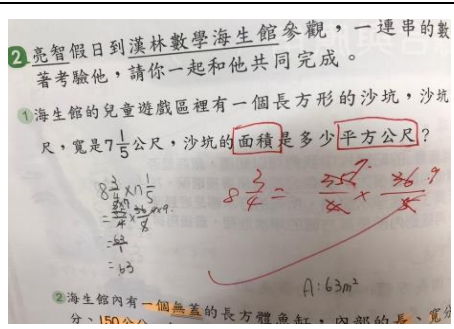 2 亮智假日到漢林數學海生館參觀，一連串的數
著考驗他，請你一起和他共同完成。
① 海生館的兒童遊戲區裡有一個長方形的沙坑，沙坑
尺，寬是7 1/5 公尺，沙坑的面積是多少平方公尺？
8 3/4 =
= 63
A：63m²
② 海生館內有一個無蓋的長方體魚缸，內部的長、寬分
分、150公分